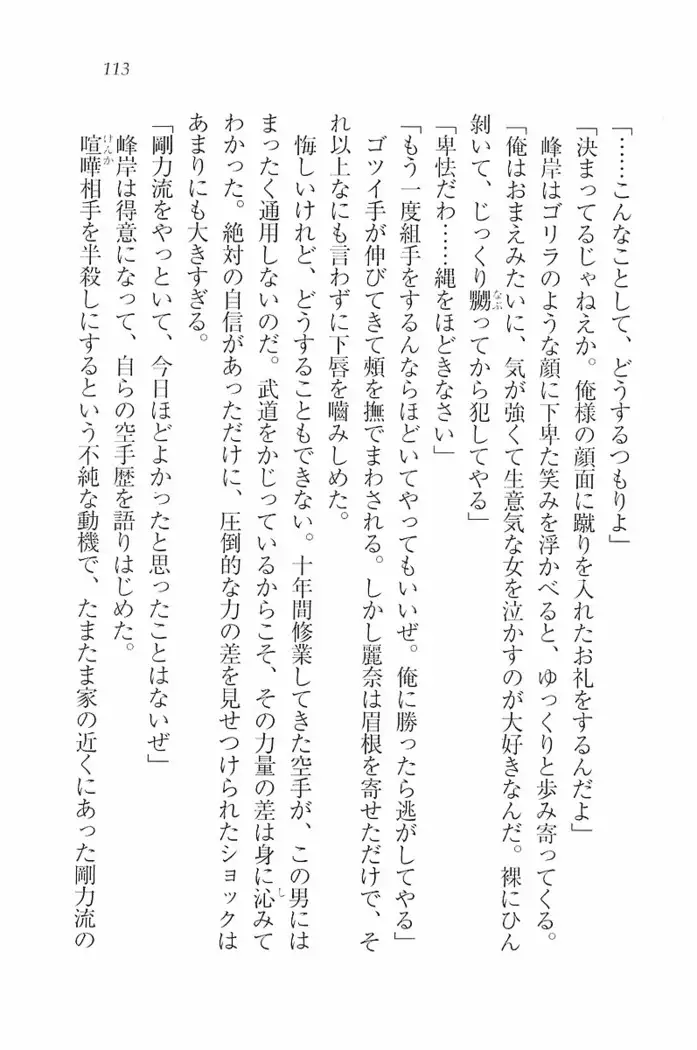 113
「……こんなことして、どうするつもりよ」
「決まってるじゃねえか。俺様の顔面に蹴りを入れたお礼をするんだよ」
峰岸はゴリラのような顔に下卑た笑みを浮かべると、ゆっくりと歩み寄ってくる。
「俺はおまえみたいに、気が強くて生意気な女を泣かすのが大好きなんだ。裸にひん
剝いて、じっくり嬲ってから犯してやる」
なぶ
「卑怯だわ……縄をほどきなさい」
「もう一度組手をするんならほどいてやってもいいぜ。俺に勝ったら逃がしてやる」
ゴツイ手が伸びてきて頰を撫でまわされる。しかし麗奈は眉根を寄せただけで、そ
れ以上なにも言わずに下唇を嚙みしめた。
悔しいけれど、どうすることもできない。十年間修業してきた空手が、この男には
まったく通用しないのだ。武道をかじっているからこそ、その力量の差は身に沁みて
し
わかった。絶対の自信があっただけに、圧倒的な力の差を見せつけられたショックは
あまりにも大きすぎる。
「剛力流をやっといて、今日ほどよかったと思ったことはないぜ」
峰岸は得意になって、自らの空手歴を語りはじめた。
喧嘩相手を半殺しにするという不純な動機で、たまたま家の近くにあった剛力流の
けんか